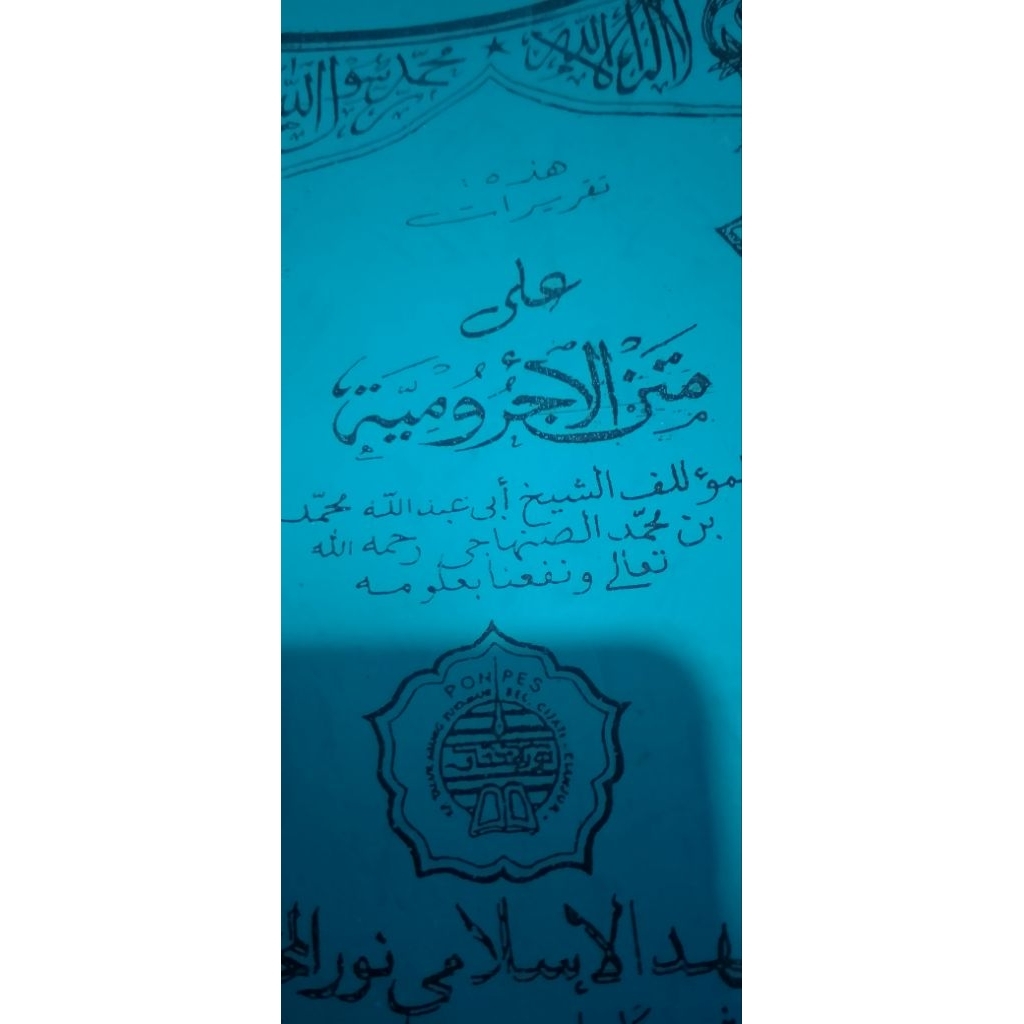 لا إله إلا الله ★ محمد رسول الله
هذه
تقريرات
على
مَتْنِ الأَجُرُومِيَّةِ
لمؤللف الشيخ أبى عبد الله محمّد
بن محمّد الصنهاجى رحمه الله
تعالى ونفعنا بعلومه
PONPES
الإسلامي نور